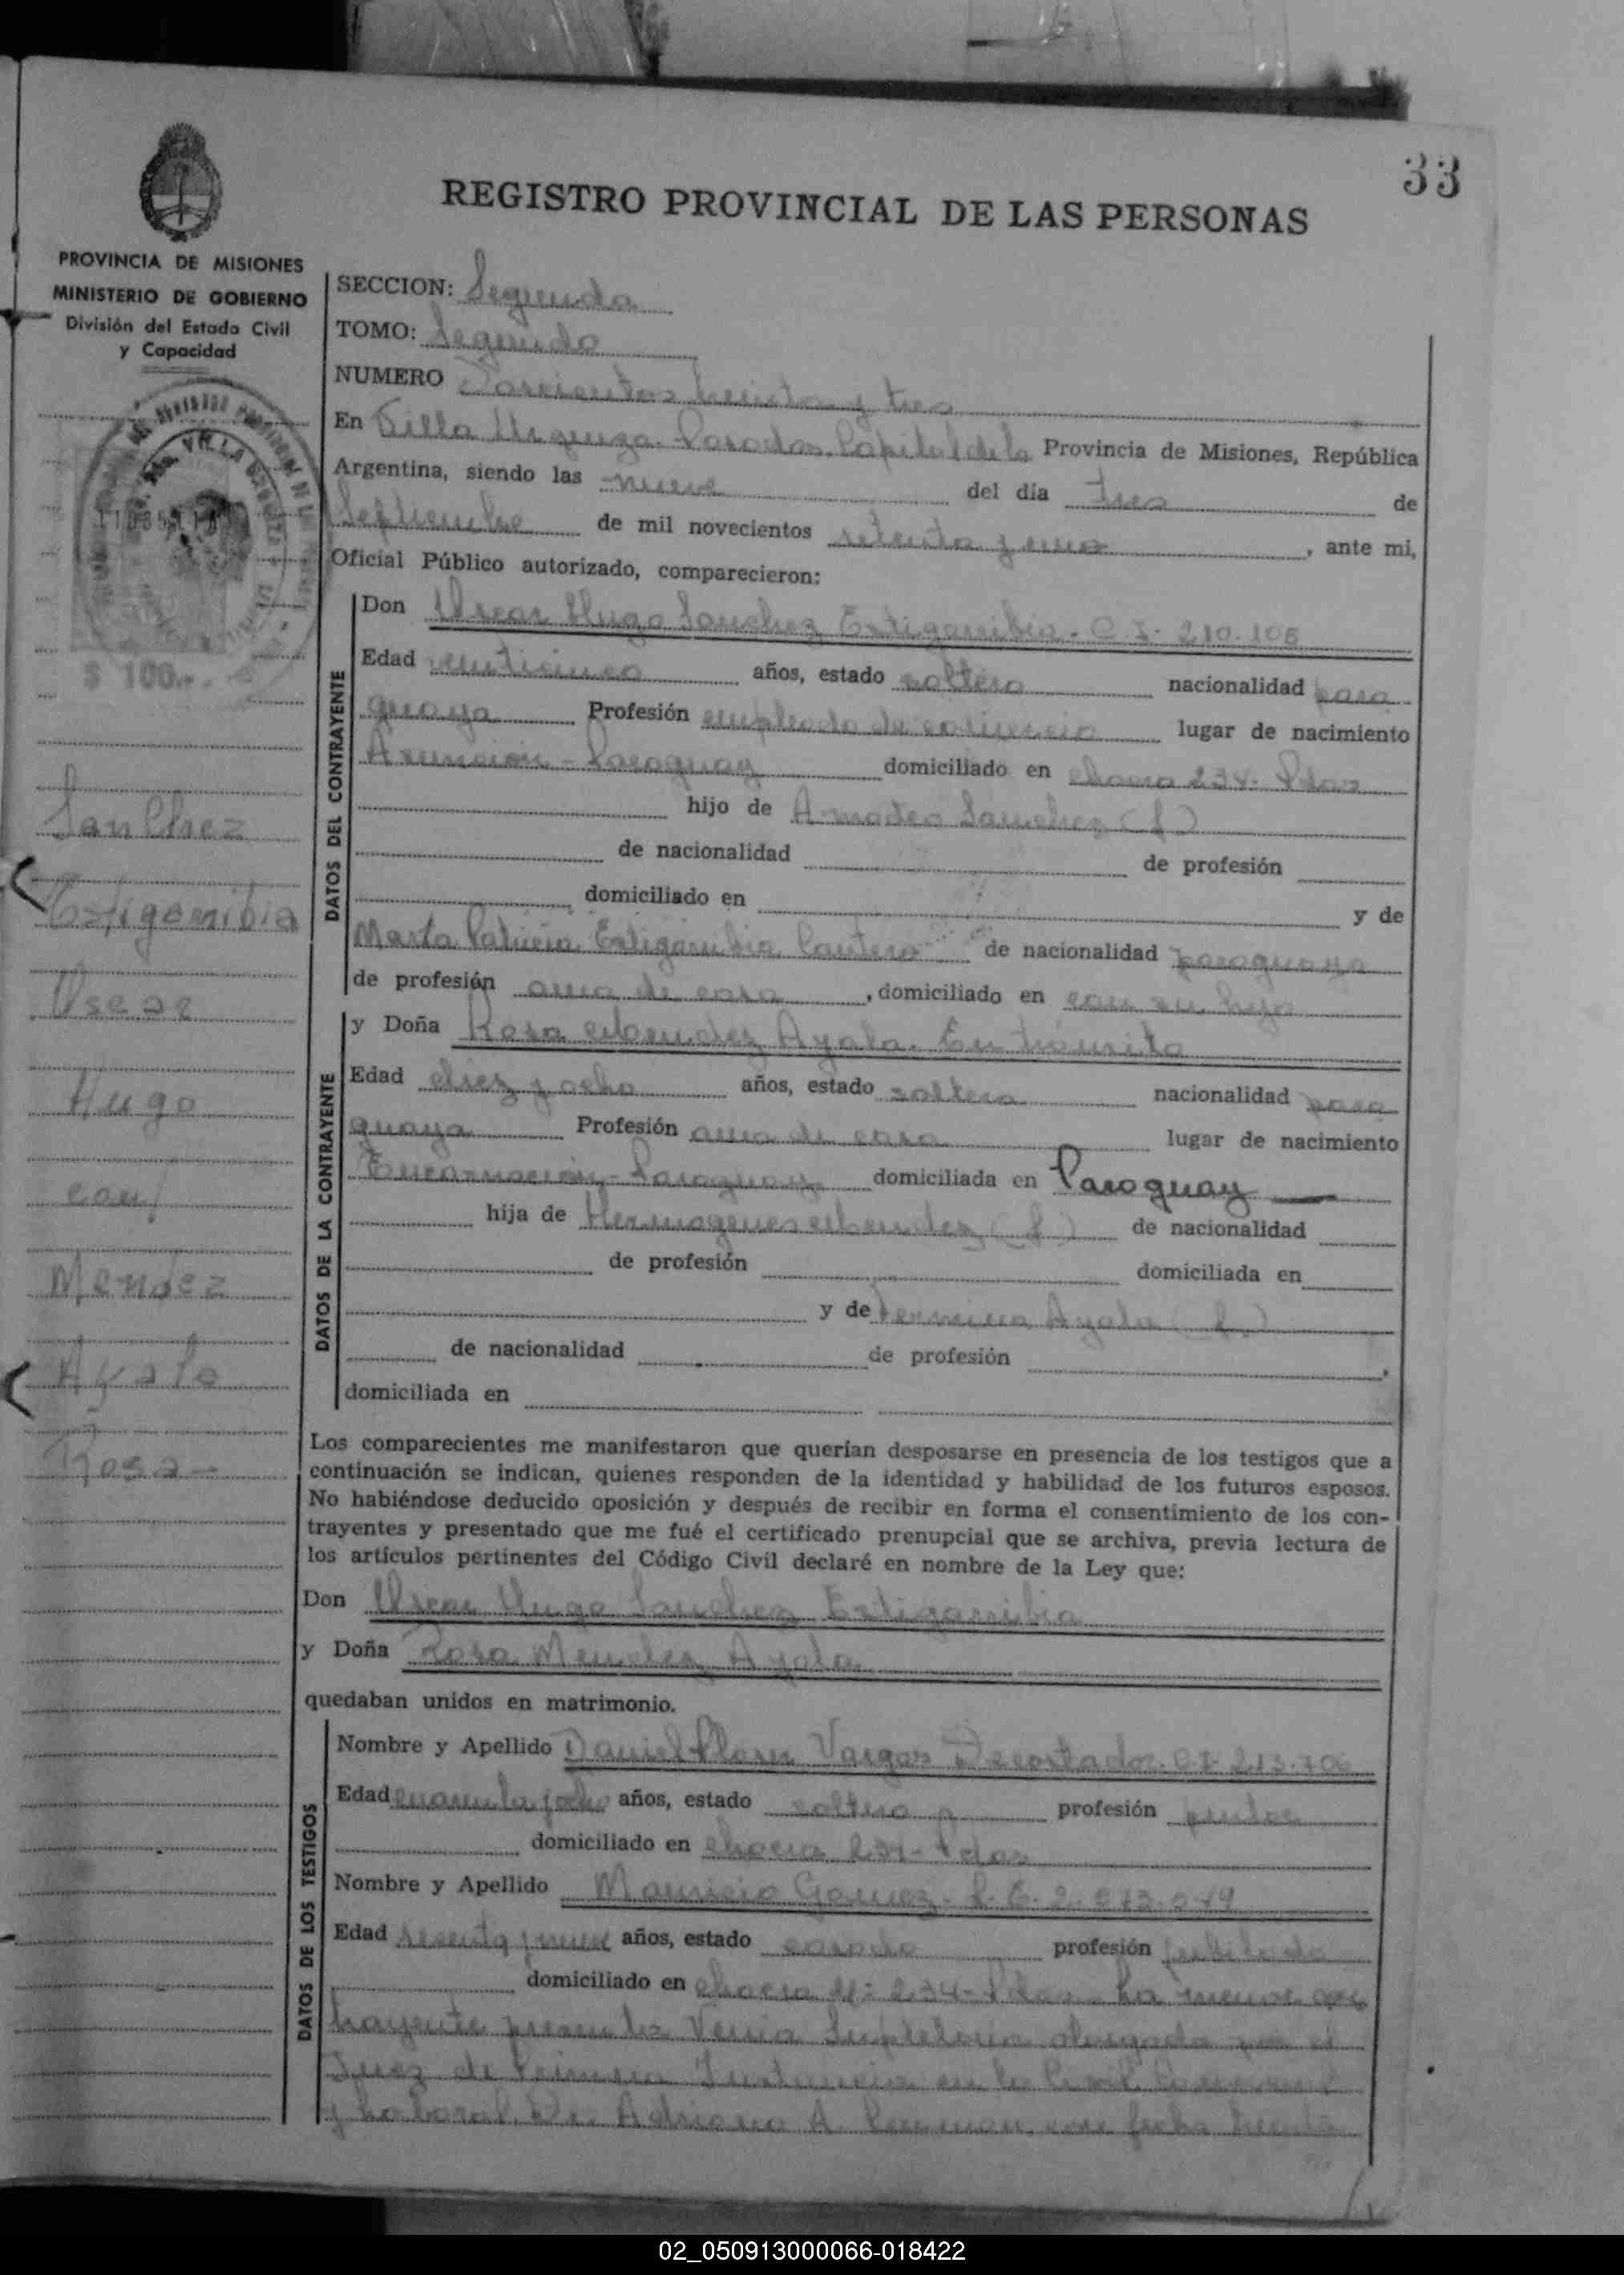 33
REGISTRO PROVINCIAL DE LAS PERSONAS
PROVINCIA DE MISIONES
MINISTERIO DE GOBIERNO
División del Estado Civil
y Capacidad
$ 100.-
Sanchez
Estigarribia
Oscar
Hugo
con/
Mendez
Ayala
Rosa-
SECCION: Segunda
TOMO: Segundo
NUMERO Doscientos treinta y tres
En Villa Urquiza. Posadas, Capital de la Provincia de Misiones, República
Argentina, siendo las nueve del día tres de
Septiembre de mil novecientos setenta y uno, ante mi,
Oficial Público autorizado, comparecieron:
DATOS DEL CONTRAYENTE
Don Oscar Hugo Sanchez Estigarribia. C.I. 210.105
Edad veinticinco años, estado soltero nacionalidad para
guaya Profesión empleado de comercio lugar de nacimiento
Asuncion - Paraguay domiciliado en chacra 234- Pdas
hijo de Amadeo Sanchez (f)
de nacionalidad de profesión
domiciliado en y de
Marta Estigarribia de nacionalidad paraguaya
de profesión ama de casa, domiciliado en con su hijo
DATOS DE LA CONTRAYENTE
y Doña Rosa Mendez Ayala. En tránsito
Edad diez y ocho años, estado soltera nacionalidad para
guaya Profesión ama de casa lugar de nacimiento
Encarnación - Paraguay domiciliada en Paraguay
hija de Hermogenes Mendez (f) de nacionalidad
de profesión domiciliada en
y de Fermina Ayala (f)
de nacionalidad de profesión
domiciliada en
Los comparecientes me manifestaron que querían desposarse en presencia de los testigos que a
continuación se indican, quienes responden de la identidad y habilidad de los futuros esposos.
No habiéndose deducido oposición y después de recibir en forma el consentimiento de los con-
trayentes y presentado que me fué el certificado prenupcial que se archiva, previa lectura de
los artículos pertinentes del Código Civil declaré en nombre de la Ley que:
Don Oscar Hugo Sanchez Estigarribia
y Doña Rosa Mendez Ayala
quedaban unidos en matrimonio.
DATOS DE LOS TESTIGOS
Nombre y Apellido Daniel Flores Vargas C.I. 213.706
Edad cuarenta y ocho años, estado soltero profesión pintor
domiciliado en chacra Pdas
Nombre y Apellido Mauricio Gomez - L.E. 2.
Edad sesenta y nueve años, estado casado profesión jubilado
domiciliado en chacra Nº 234- Pdas. La menor con
trayente presenta Venia Supletoria otorgada por el
Juez de Primera Instancia en lo Civil, Comercial
y Laboral Dr. A. con fecha treinta
02_050913000066-018422